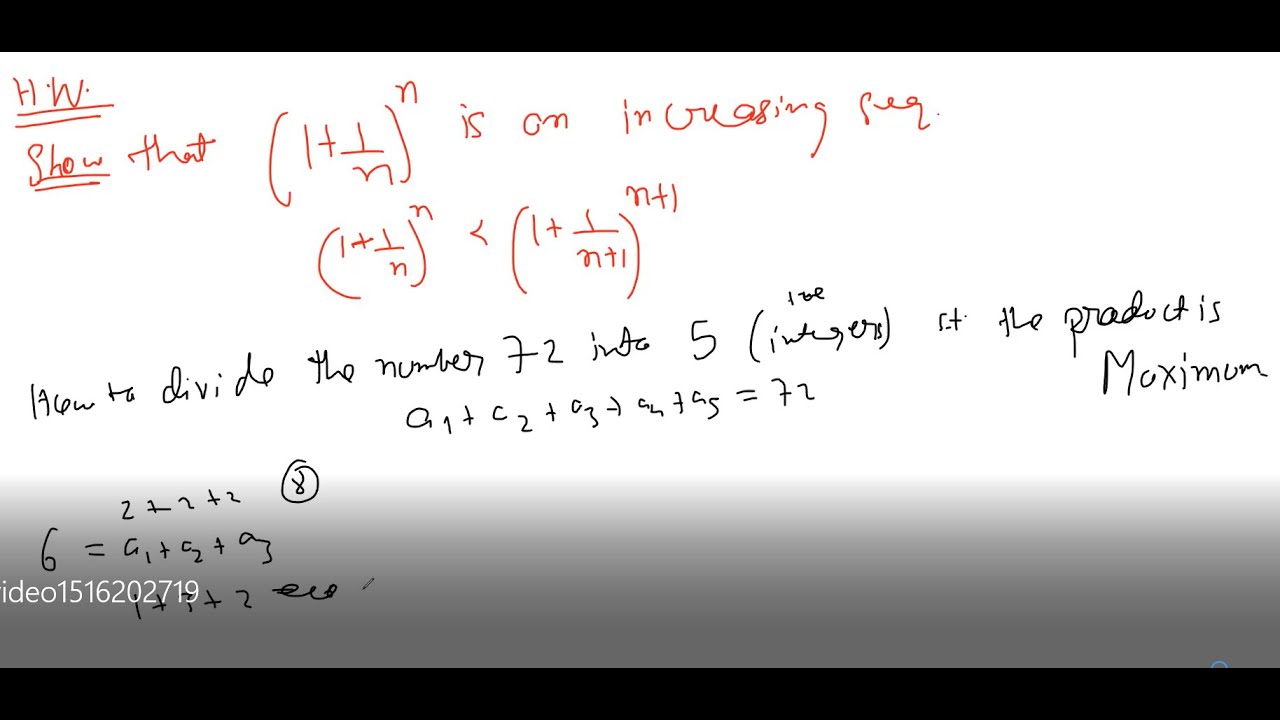 H.W.
Show that (1+1/n)^n is an increasing seq.
(1+1/n)^n < (1+1/(n+1))^(n+1)
+ve
How to divide the number 72 into 5 (integers) s.t. the product is
Maximum
a1 + a2 + a3 + a4 + a5 = 72
2 + 2 + 2 8
6 = a1 + a2 + a3
video1516202719
1 + 3 + 2